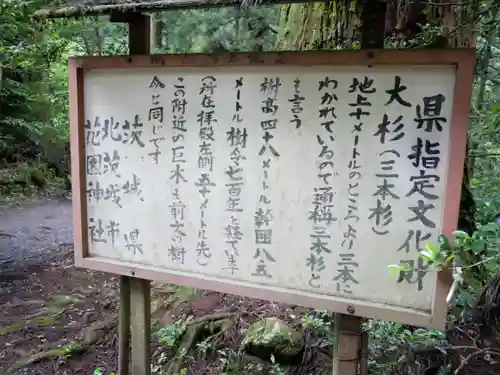 県指定文化財
大杉（三本杉）
地上十メートルのところより三本に
わかれているので通稱三本杉と
も言う
樹高四八メートル 幹囲八五
メートル 樹令七百年と経てい
（所在 拝殿左側 五十メートル先）
この附近の巨木も前文の樹
令と同じです
茨城県
北茨城市
花園神社